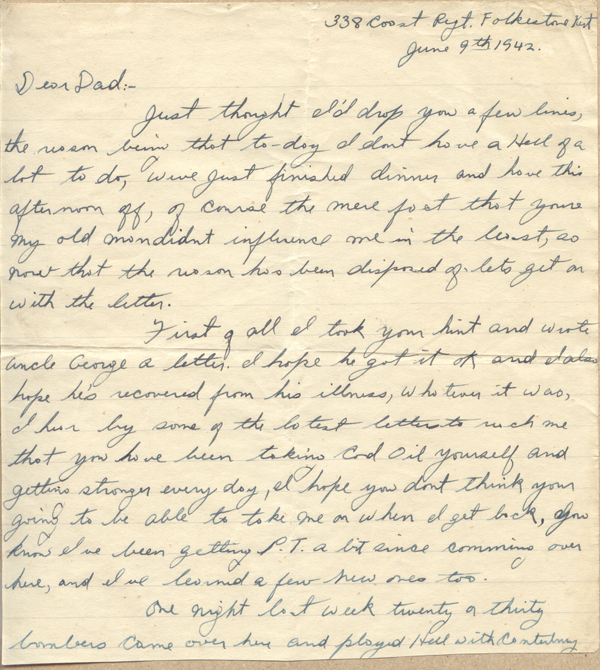 338 Coast Rgt. Folkestone Kent
June 9th 1942.
Dear Dad:-
Just thought I'd drop you a few lines,
the reason being that to-day I dont have a Hell of a
lot to do, weve just finished dinner and have this
afternoon off, of course the mere fact that youre
my old man didnt influence me in the least, so
now that the reason has been disposed of lets get on
with the letter.
First of all I took your hint and wrote
uncle George a letter. I hope he got it ok and I also
hope he's recovered from his illness, whatever it was,
I hear by some of the latest letters to reach me
that you have been taking Cod Oil yourself and
getting stronger every day, I hope you dont think your
going to be able to take me on when I get back, You
know I've been getting P.T. a bit since comming over
here, and I've learned a few new ones too.
One night last week twenty or thirty
bombers came over here and played Hell with Canterbury